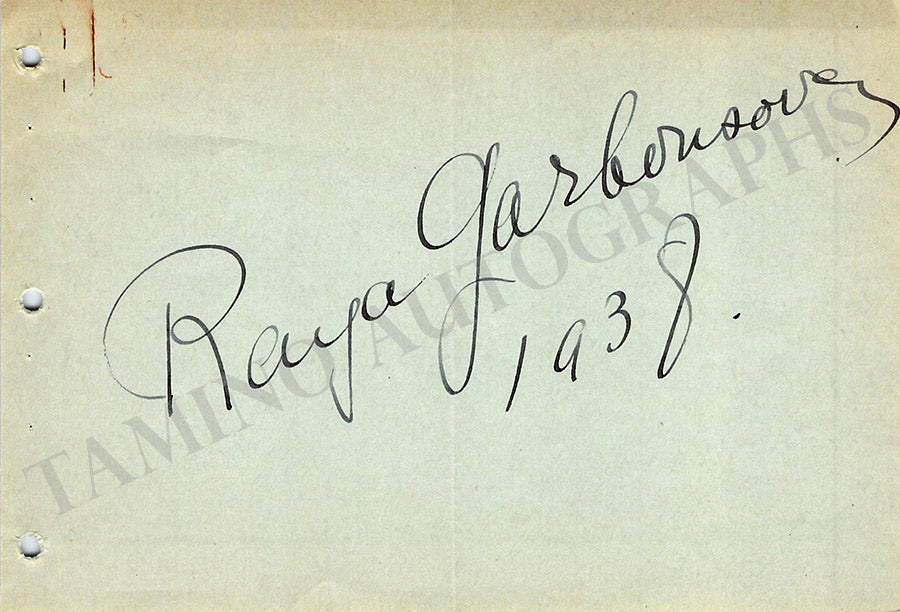 Raya Garbousova
1938.
TAMINO AUTOGRAPHS